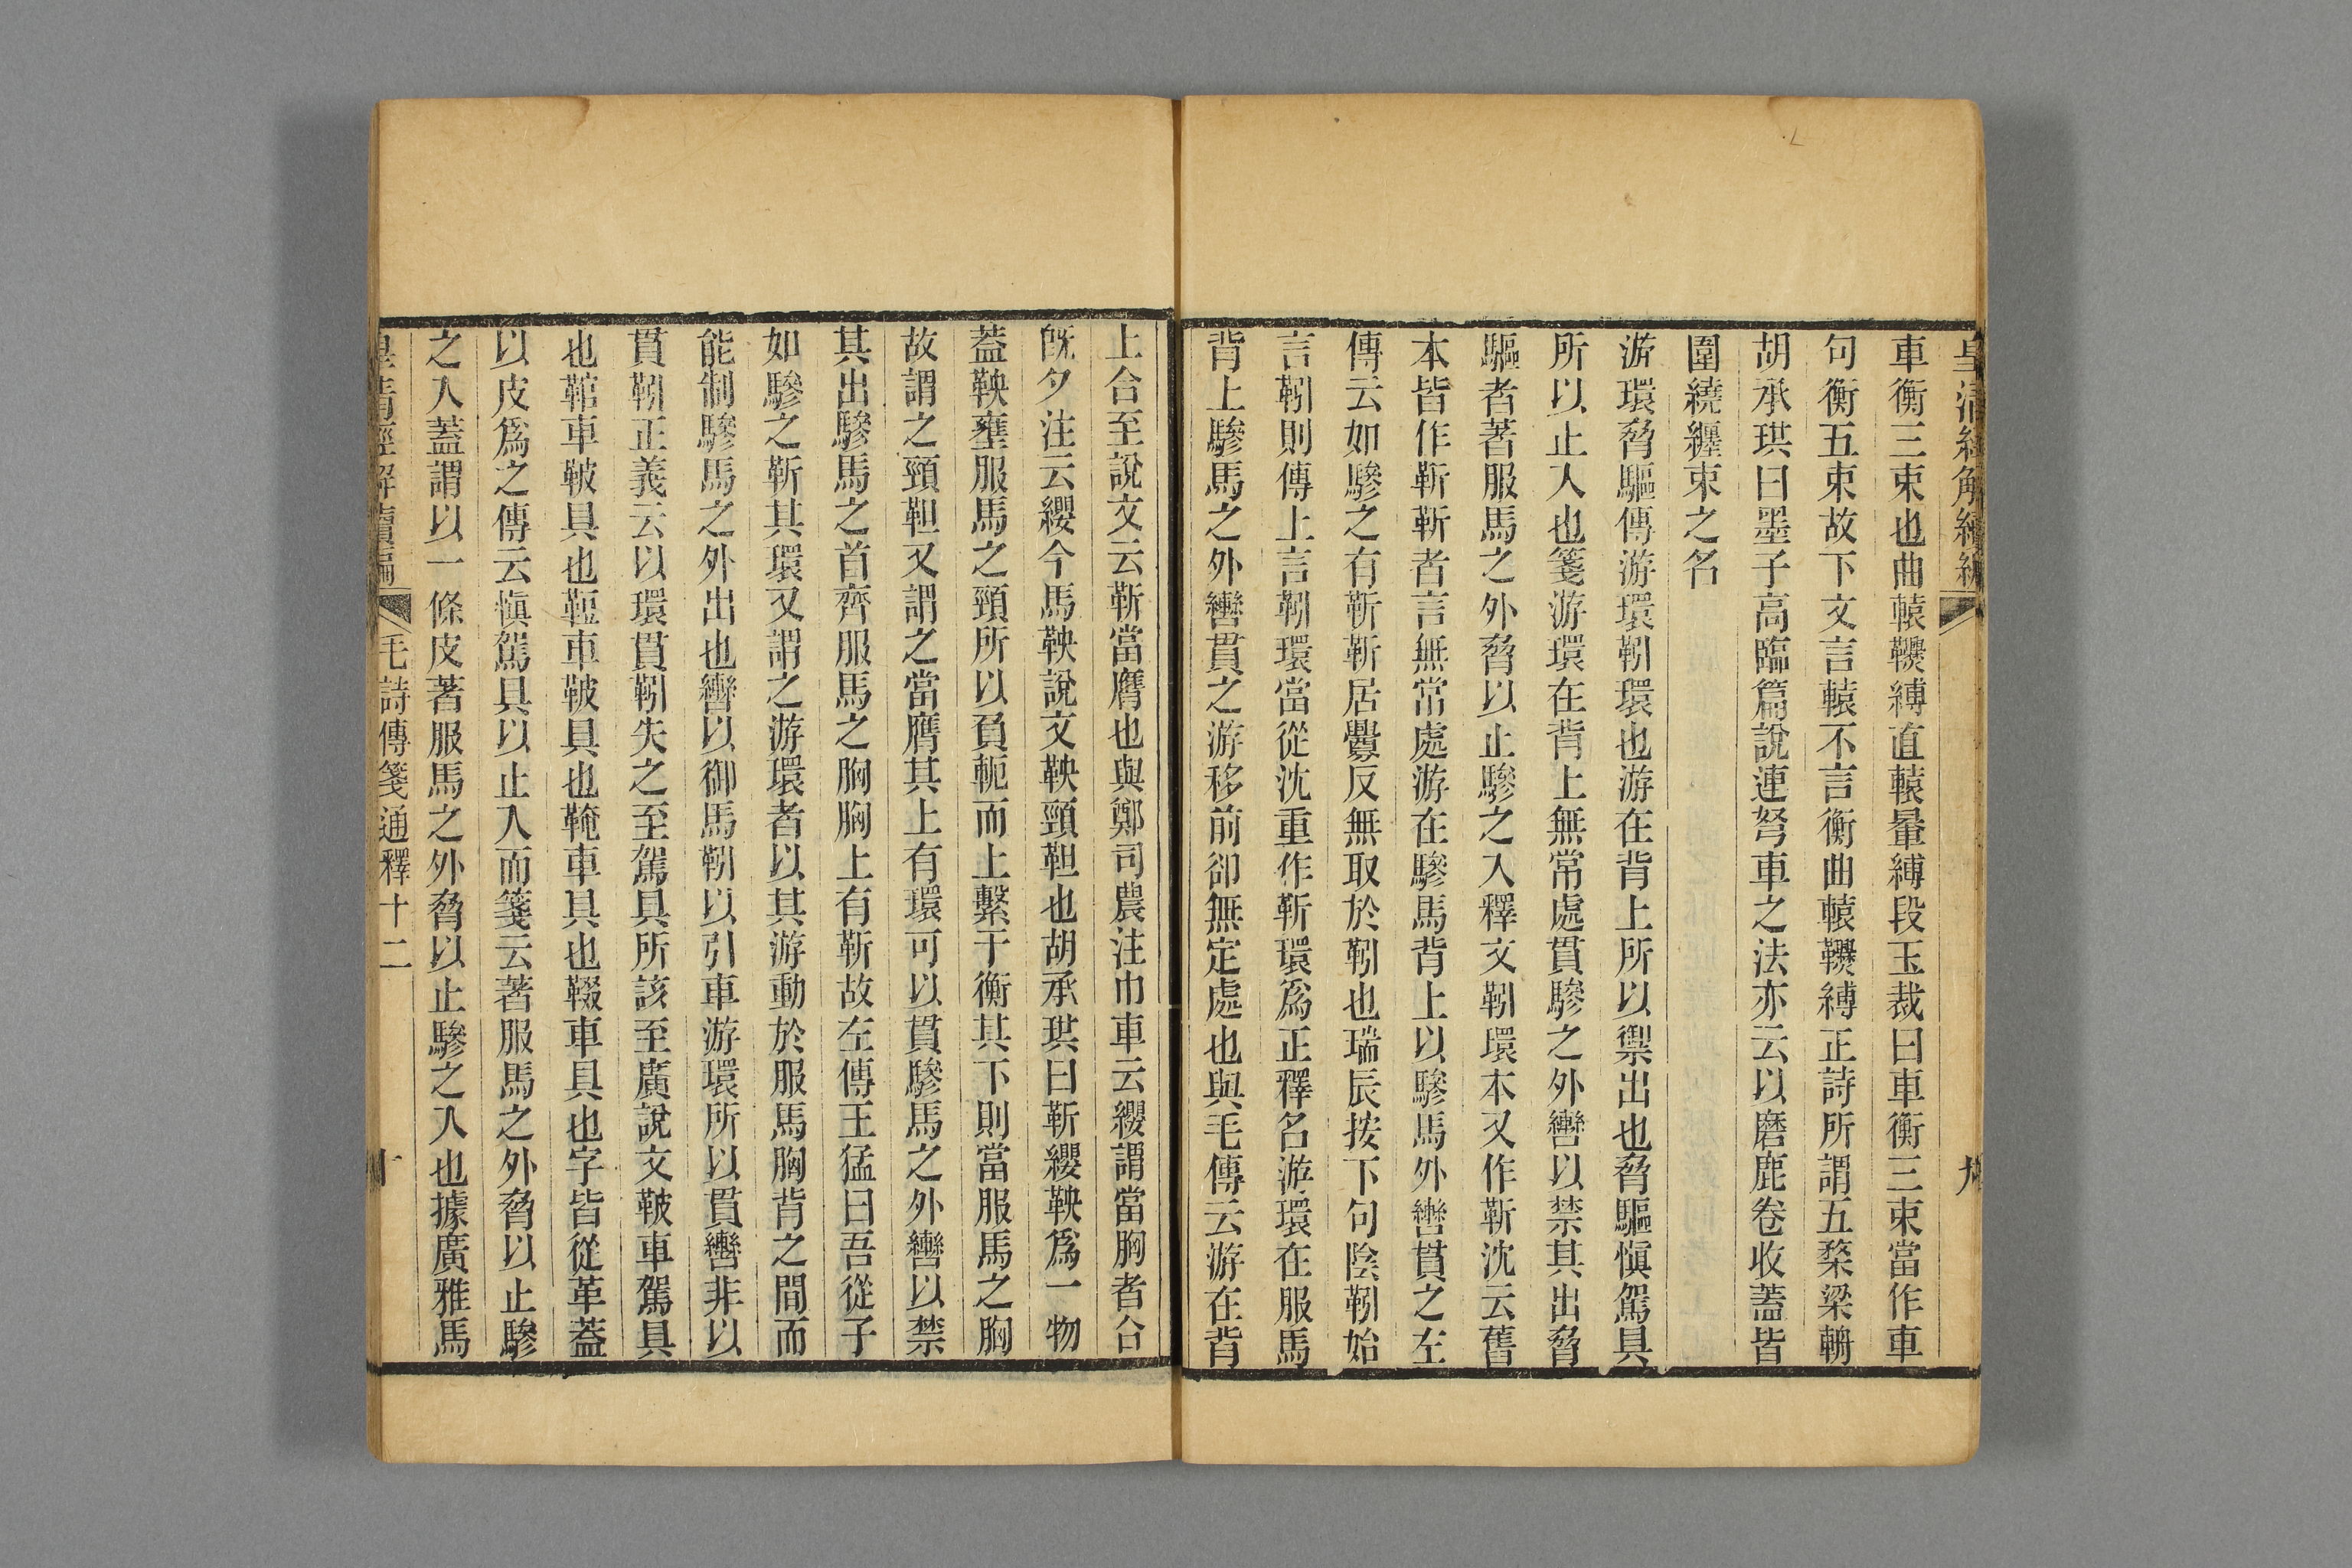 皇清經解續編
九
車衡三束也曲轅䪅縛直轅𨍥縛段玉裁曰車衡三束當作車
句衡五束故下文言轅不言衡曲轅䪅縛正詩所謂五楘梁輈
胡承珙曰墨子高臨篇說連弩車之法亦云以磨鹿卷收蓋皆
圍繞纏束之名
游環脅驅傳游環靷環也游在背上所以禦出也脅驅愼駕具
所以止入也箋游環在背上無常處貫驂之外轡以禁其出脅
驅者著服馬之外脅以止驂之入釋文靷環本又作靳沈云舊
本皆作靳靳者言無常處游在驂馬背上以驂馬外轡貫之左
傳云如驂之有靳靳居釁反無取於靷也瑞辰按下句陰靷始
言靷則傳上言靷環當從沈重作靳環爲正釋名游環在服馬
背上驂馬之外轡貫之游移前卻無定處也與毛傳云游在背
上合至說文云靳當膺也與鄭司農注巾車云纓謂當胸者合
旣夕注云纓今馬鞅說文鞅頸靼也胡承珙曰靳纓鞅爲一物
蓋鞅壅服馬之頸所以負軛而上繫于衡其下則當服馬之胸
故謂之頸靼又謂之當膺其上有環可以貫驂馬之外轡以禁
其出驂馬之首齊服馬之胸胸上有靳故左傳王猛曰吾從子
如驂之靳其環又謂之游環者以其游動於服馬胸背之間而
能制驂馬之外出也轡以御馬靷以引車游環所以貫轡非以
貫靷正義云以環貫靷失之至駕具所該至廣說文鞁車駕具
也鞥車鞁具也䩠車鞁具也䩩車具也輟車具也字皆從革蓋
以皮爲之傳云愼駕具以止入而箋云著服馬之外脅以止驂
之入蓋謂以一條皮著服馬之外脅以止驂之入也據廣雅馬
皇清經解續編
毛詩傳箋通釋十二
十